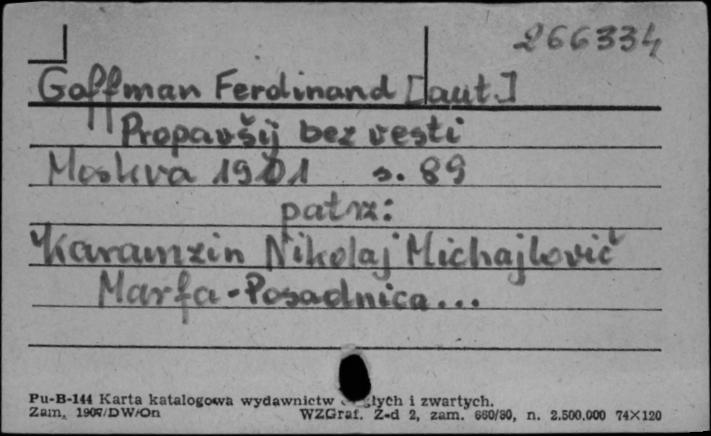 266334
Goffman Ferdinand [aut.]
Propavšij bez vesti
Moskva 1901 s. 89
patrz:
Karamzin Nikolaj Michajlovič
Marfa-Posadnica...
Pu-B-144 Karta katalogowa wydawnictw i zwartych.
Zam. 1907/DW/On WZGraf. Z-d 2, zam. 660/80, n. 2.500.000 74×120